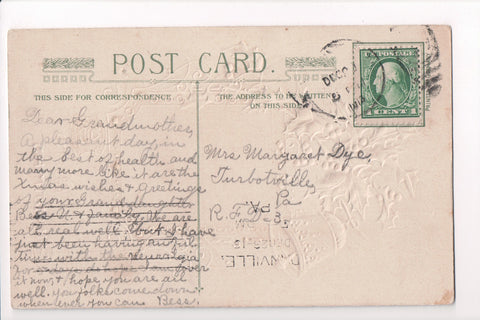 POST CARD.
THIS SIDE FOR CORRESPONDENCE
THE ADDRESS TO BE WRITTEN
ON THIS SIDE.
1 CENT 1
Dear Grandmother,
A pleasant day, in
the best of health and
many more like it are the
Xmas wishes & Greetings
of your Granddaughter
Bess & family. We are
all real well but I have
just been having awful
times with the neuralgia
for days at hope I am over
it now, & hope you are all
well. You folks come down
when ever you can Bess.
Mrs Margaret Dye,
Turbotville,
Pa
R.F.D. 3
DANVILLE,
PA.